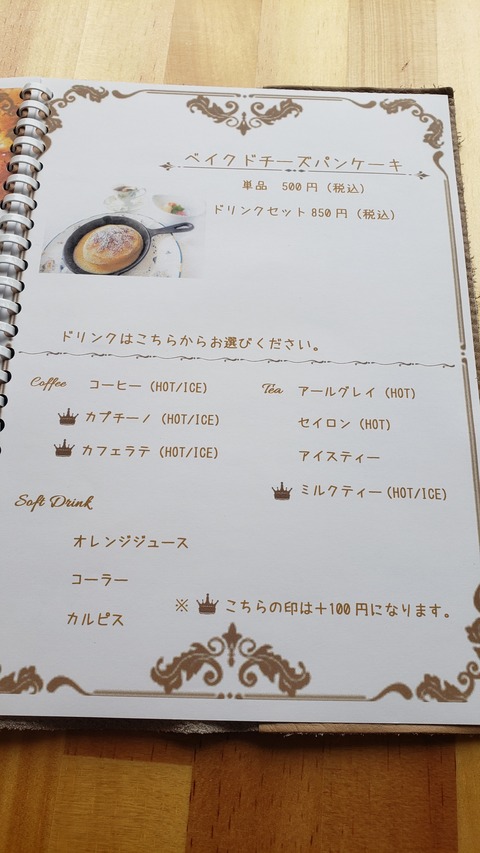 ベイクドチーズパンケーキ
単品 500円(税込)
ドリンクセット850円(税込)
ドリンクはこちらからお選びください。
Coffee コーヒー(HOT/ICE)
カプチーノ(HOT/ICE)
カフェラテ(HOT/ICE)
Tea アールグレイ(HOT)
セイロン(HOT)
アイスティー
ミルクティー(HOT/ICE)
Soft Drink
オレンジジュース
コーラー
カルピス
※ こちらの印は+100円になります。